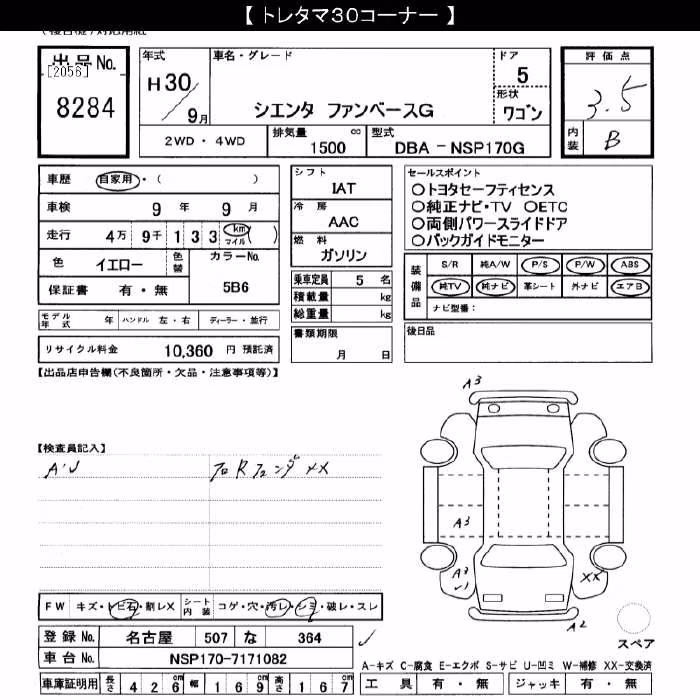 【 トレタマ30コーナー 】
出品No.
[2056]
8284
年式
H30/9月
車名・グレード
シエンタ ファンベースG
ドア
5
形状
ワゴン
評価点
3.5
内装
B
2WD・4WD
排気量
1500
cc
型式
DBA - NSP170G
車歴 自家用・( )
車検 9年 9月
走行 4万 9千 1 3 3 km マイル ( )
色 イエロー
色替
カラーNo.
5B6
保証書 有・無
モデル年式 年
ハンドル 左・右
ディーラー・並行
リサイクル料金 10,360 円 預託済
シフト
IAT
冷房
AAC
燃料
ガソリン
乗車定員 5 名
積載量 kg
総重量 kg
書類期限
月 日
セールスポイント
○トヨタセーフティセンス
○純正ナビ・TV ○ETC
○両側パワースライドドア
○バックガイドモニター
装備品
S/R 純A/W P/S P/W ABS
純TV 純ナビ 革シート 外ナビ エアB
ナビ型番:
後日品
【出品店申告欄(不良箇所・欠品・注意事項等)】
【検査員記入】
A'U
フロRフェンダ XX
A3
A3
A3
XX
A2
スペア
FW キズ・トビ石・割レX
シート内装 コゲ・穴・汚レ・シミ・破レ・スレ
登録No. 名古屋 507 な 364
車台No. NSP170-7171082
車庫証明用 長さ 426cm 幅 169cm 高さ 167cm
A-キズ C-腐食 E-エクボ S-サビ U-凹ミ W-補修 XX-交換済
工具 有・無 ジャッキ 有・無